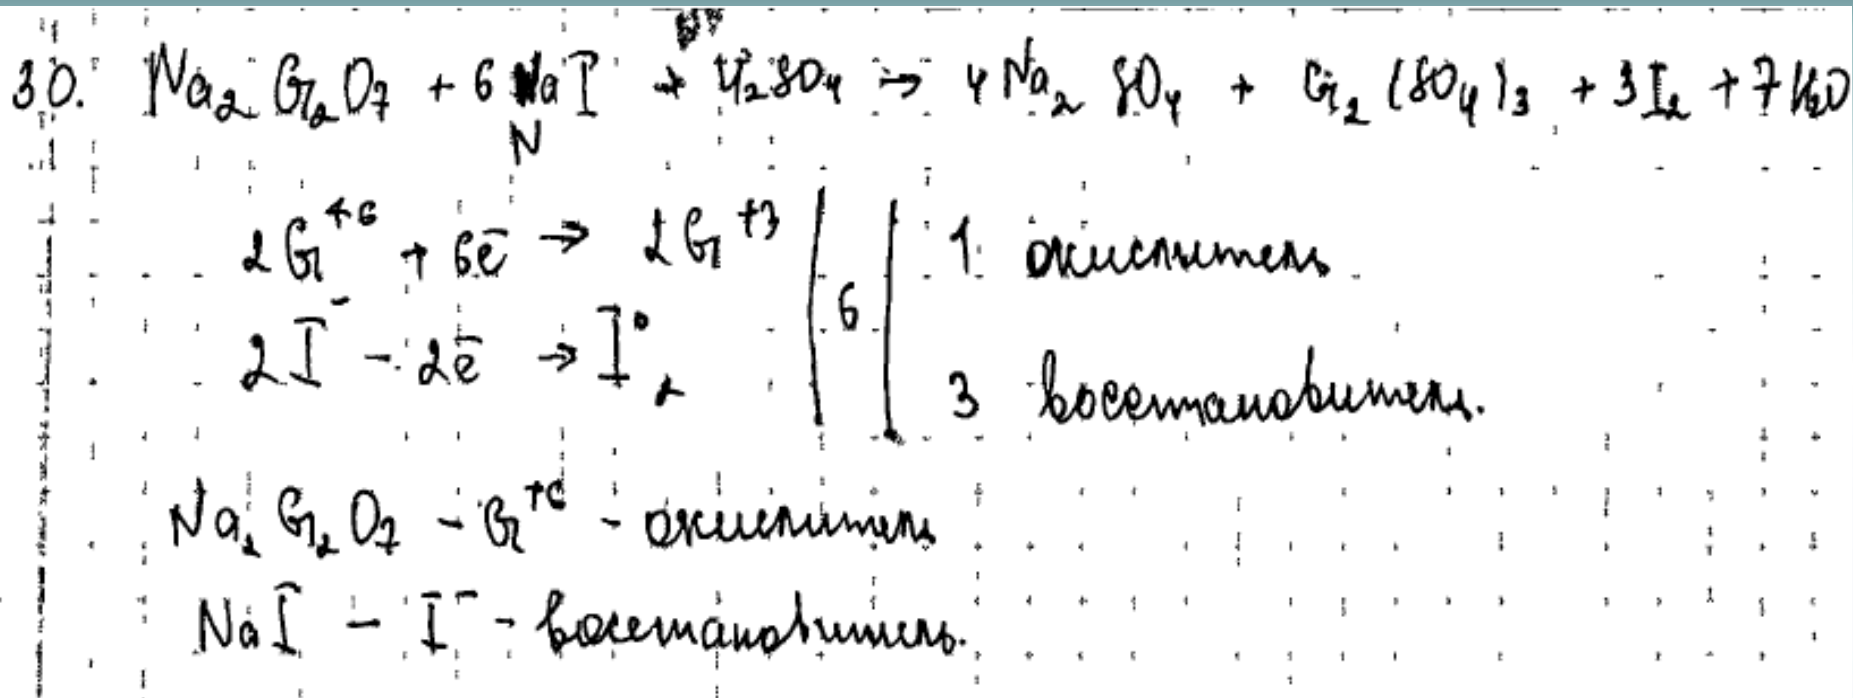 30. Na₂Cr₂O₇ + 6 NaI + H₂SO₄ → 4 Na₂SO₄ + Cr₂(SO₄)₃ + 3I₂ + 7H₂O
N
2Cr⁺⁶ + 6ē → 2Cr⁺³ | 6 | 1 окислитель
2I⁻ - 2ē → I⁰₂ 3 восстановитель.
Na₂Cr₂O₇ - Cr⁺⁶ - окислитель
NaI - I⁻ - восстановитель.